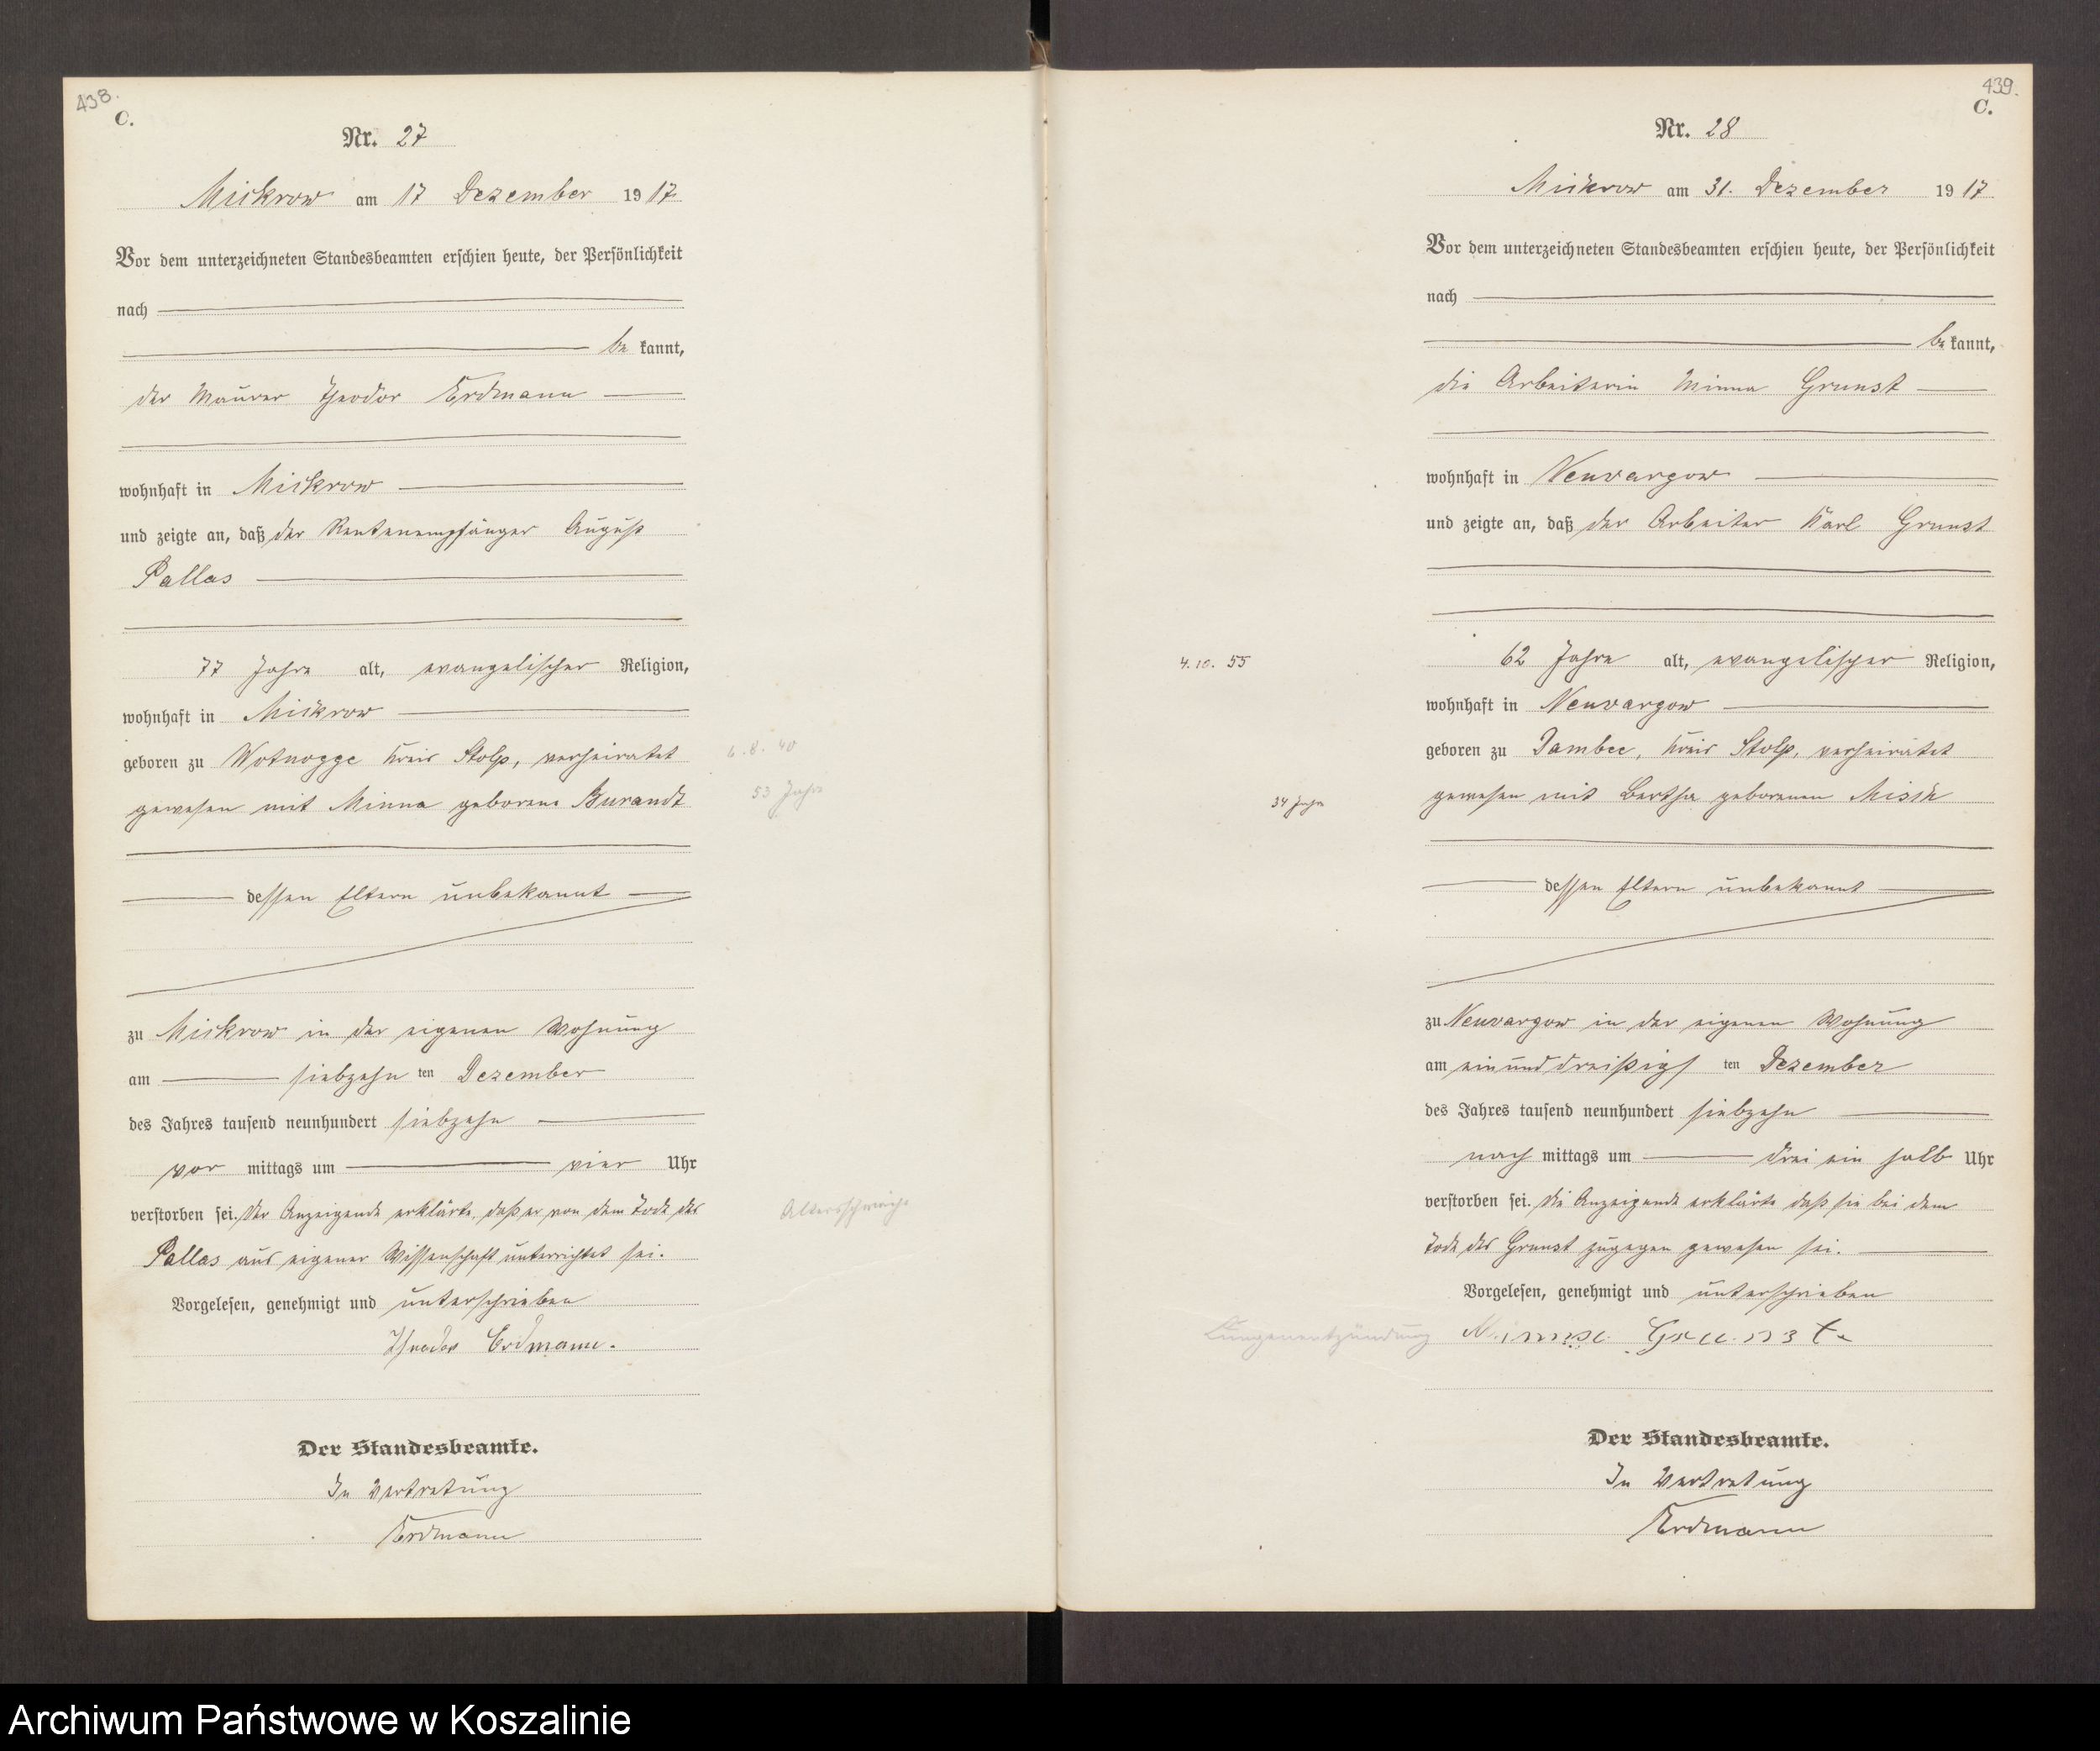 438.
C.
Nr. 27
Mickrow am 17 Dezember 1917
Vor dem unterzeichneten Standesbeamten erschien heute, der Persönlichkeit
nach
be kannt,
der Maurer Theodor Erdmann
wohnhaft in Mickrow
und zeigte an, daß der Rentenempfänger August
Pallas
77 Jahre alt, evangelischer Religion,
wohnhaft in Mickrow
geboren zu Wotnogge Kreis Stolp, verheiratet
6.8.40
gewesen mit Minna geborene Burandt
53 Jahre
dessen Eltern unbekannt
zu Mickrow in der eigenen Wohnung
am siebzehn ten Dezember
des Jahres tausend neunhundert siebzehn
vor mittags um vier Uhr
verstorben sei. Der Anzeigende erklärte, daß er von dem Tode des
Altersschwäche
Pallas aus eigener Wissenschaft unterrichtet sei.
Vorgelesen, genehmigt und unterschrieben
Theodor Erdmann.
Der Standesbeamte.
In Vertretung
Erdmann
439.
C.
Nr. 28
Mickrow am 31. Dezember 1917
Vor dem unterzeichneten Standesbeamten erschien heute, der Persönlichkeit
nach
be kannt,
die Arbeiterin Minna Grunst
wohnhaft in Neuvargow
und zeigte an, daß der Arbeiter Karl Grunst
4.10.55
62 Jahre alt, evangelischer Religion,
wohnhaft in Neuvargow
geboren zu Dambee, Kreis Stolp, verheiratet
34 Jahre
gewesen mit Bertha geborenen Misch
dessen Eltern unbekannt
zu Neuvargow in der eigenen Wohnung
am einunddreißigs ten Dezember
des Jahres tausend neunhundert siebzehn
nach mittags um drei ein halb Uhr
verstorben sei. Die Anzeigende erklärte daß sie bei dem
Tode des Grunst zugegen gewesen sei.
Vorgelesen, genehmigt und unterschrieben
Lungenentzündung
Minna Grunst.
Der Standesbeamte.
In Vertretung
Erdmann
Archiwum Państwowe w Koszalinie